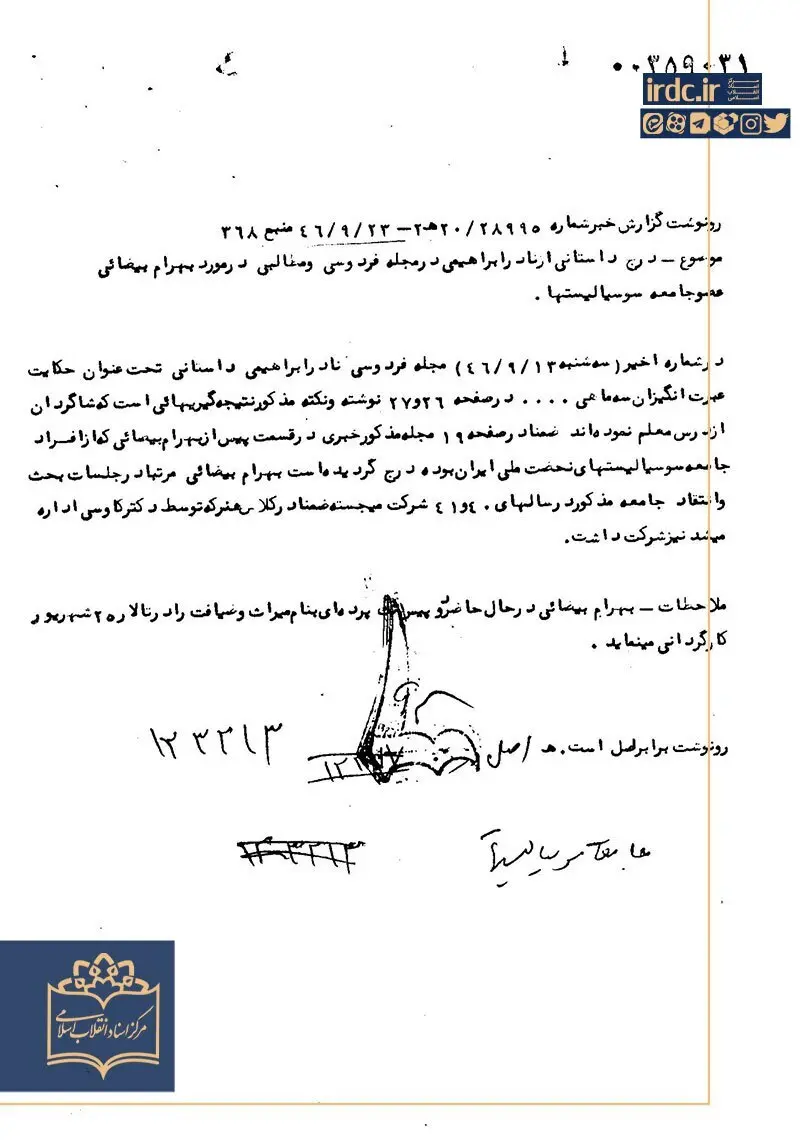 ۰۰۳۵۹۰۳۱
irdc.ir
مرکز اسناد انقلاب اسلامی
رونوشت گزارش خبرشماره ۲۸۹۹۵ / ۲۰ه‍۲ – ۴۶/۹/۲۳ منبع ۳۶۸
موضوع – درج داستانی ازنادرابراهیمی درمجله فردوسی ومطالبی درمورد بهرام بیضائی
عضوجامعه سوسیالیستها .
درشماره اخیر (سه‌شنبه ۴۶/۹/۱۳) مجله فردوسی نادرابراهیمی داستانی تحت عنوان حکایت
عبرت انگیزان سه ماهی .... درصفحه ۲۶و۲۷ نوشته ونکته مذکورنتیجه‌گیریهائی است که شاگردان
ازدرس معلم نموده‌اند ضمنادرصفحه ۱۹ مجله مذکورخبری درقسمت پیس ازبهرام بیضائی که ازافراد
جامعه سوسیالیستهای نحضت ملی ایران بوده درج گردیده‌است بهرام بیضائی مرتبادرجلسات بحث
وانتقاد جامعه مذکوردرسالهای ۴۰و۴۱ شرکت میجسته ضمنادرکلاس هنرکه توسط دکترکاوسی اداره
میشد نیزشرکت داشت.
ملاحظات – بهرام بیضائی درحال حاضردو پیس پرده‌ای بنام میراث وضیافت رادرتالار ۲۵ شهریور
کارگردانی مینماید .
رونوشت برابراصل است. ه‍ اصل
۱۲۳۲۱۳
جامعه سوسیالیستها
مرکز اسناد انقلاب اسلامی